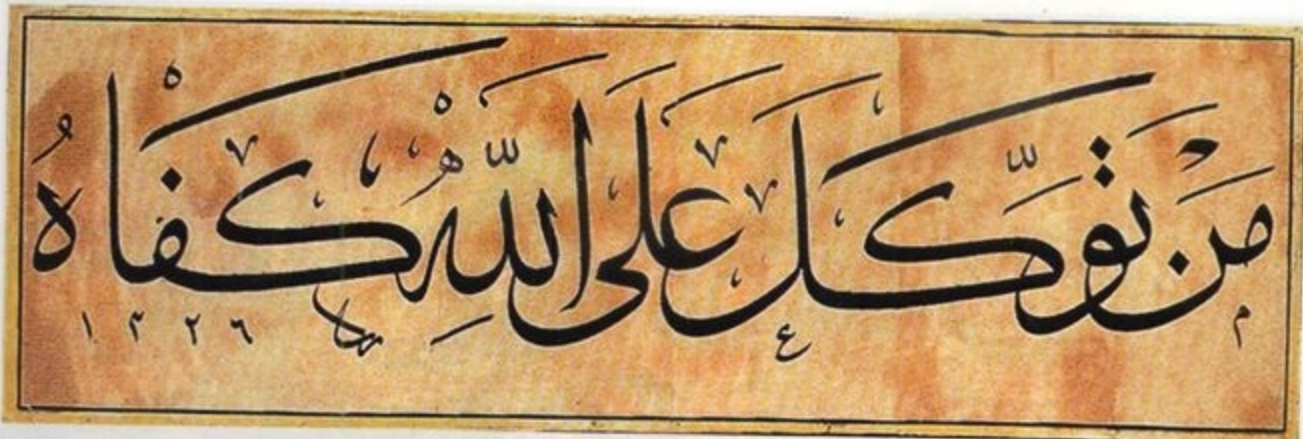 مَنْ تَوَكَّلَ عَلَى اللّٰهِ كَفَاهُ
١٣٢٦